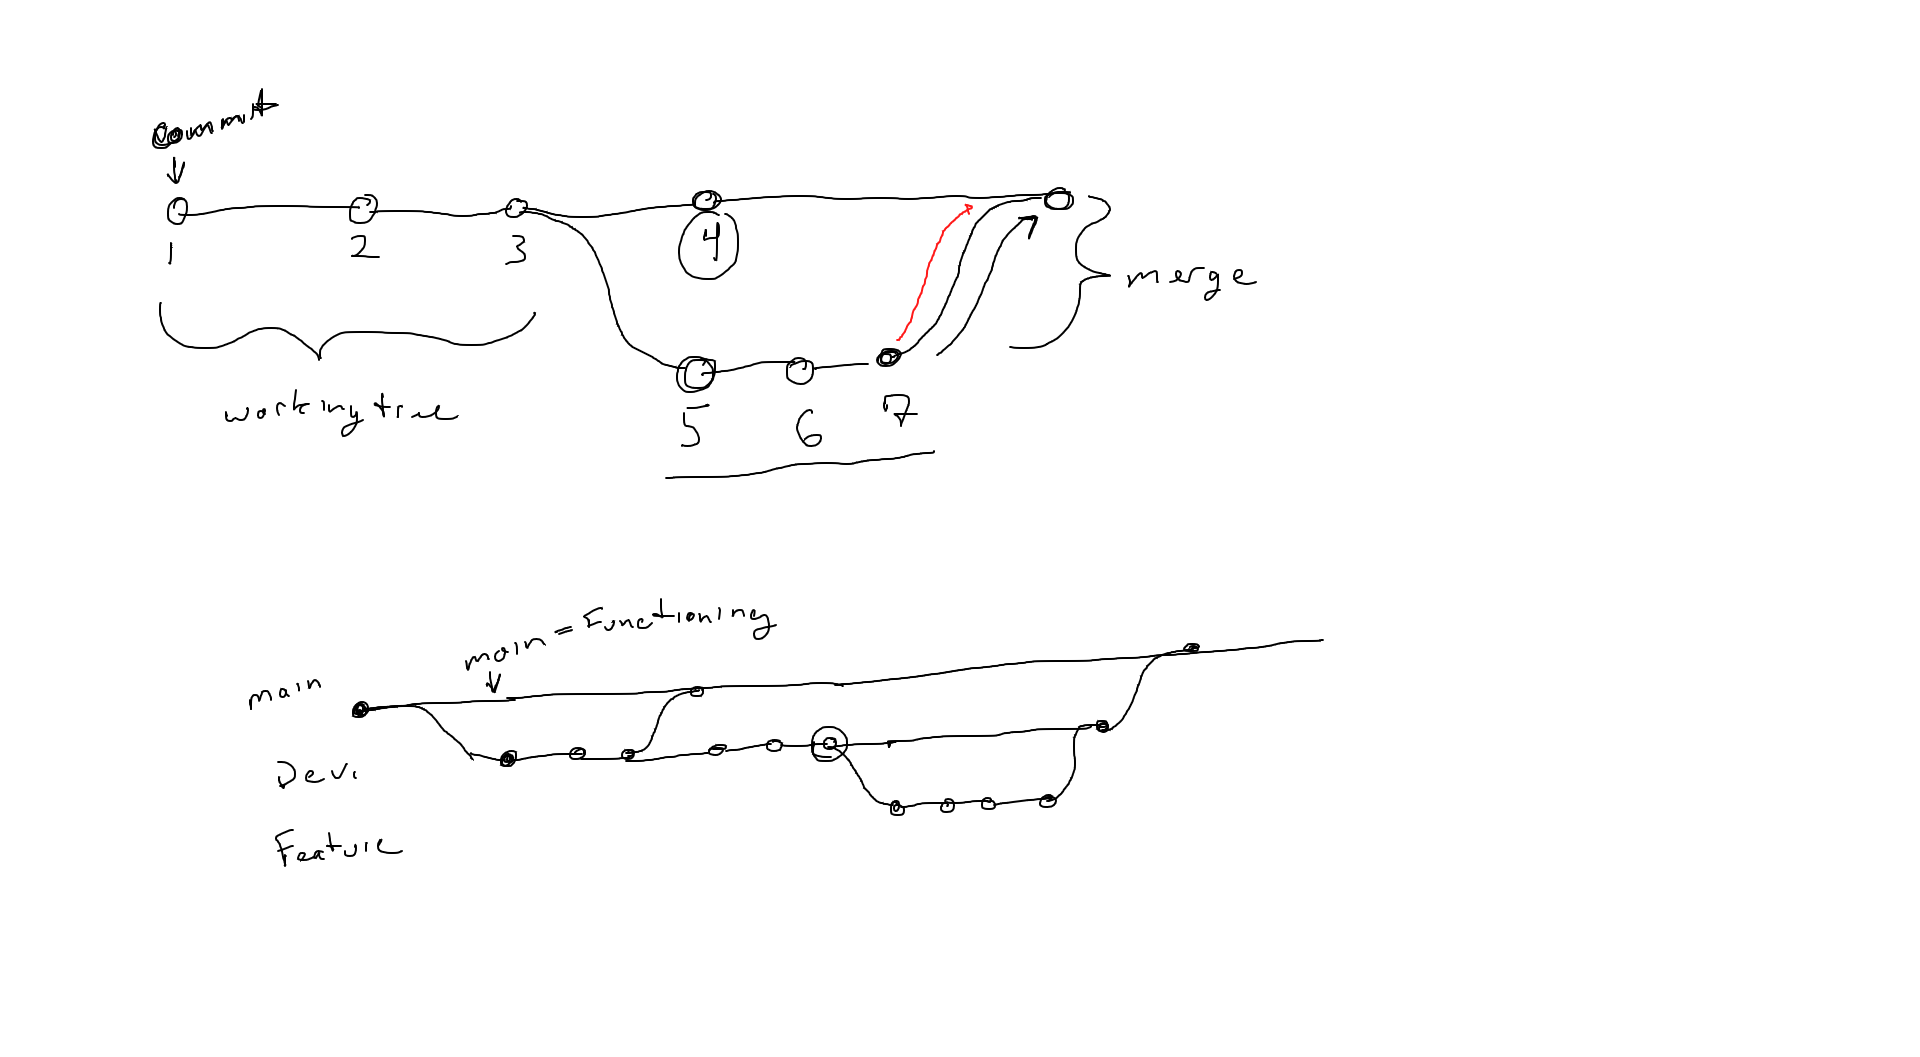 commit
1 2 3 4
merge
working tree
5 6 7
main = Functioning
main
Dev.
Feature